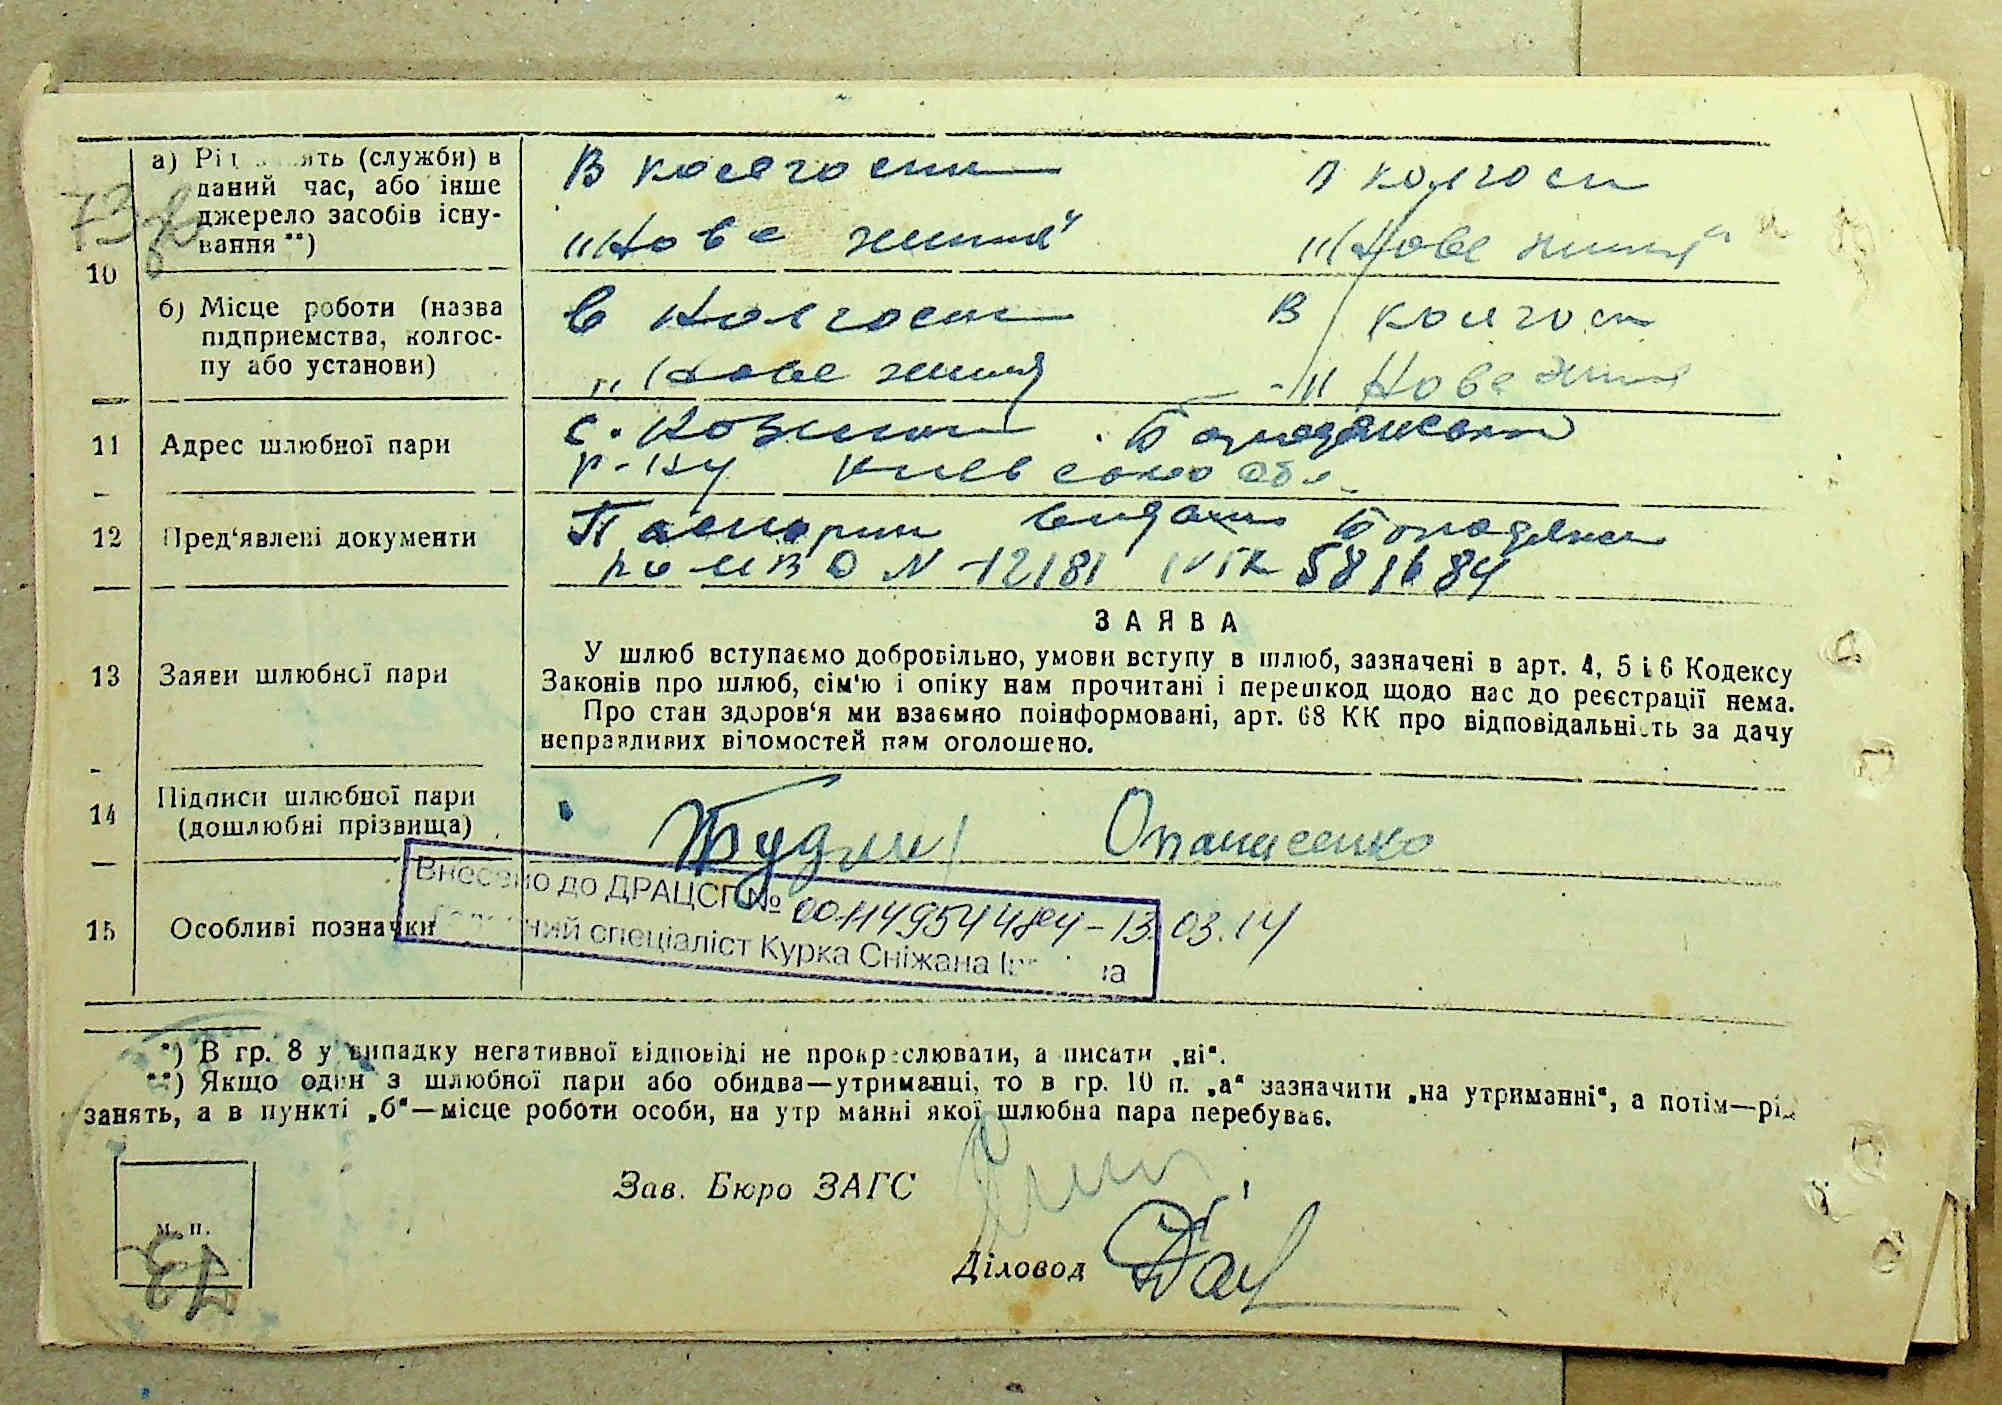 73 зв
10
а) Рід занять (служби) в
даний час, або інше
джерело засобів існу-
вання **)
В колгоспи
В колгосп
"Нове життя"
"Нове життя"
б) Місце роботи (назва
підприемства, колгос-
пу або установи)
в колгоспи
В колгосп
"Нове життя
"Нове життя
11
Адрес шлюбної пари
с. Козинці Бородянсько
р-ну Киевсько обл.
12
Пред'явлені документи
Паспорти видані Бородянсь
РоМВД N 12181 581684
ЗАЯВА
13
Заяви шлюбної пари
У шлюб вступаємо добровільно, умови вступу в шлюб, зазначені в арт. 4, 5 і 6 Кодексу
Законів про шлюб, сім'ю і опіку нам прочитані і перешкод щодо нас до реєстрації нема.
Про стан здоров'я ми взаємно поінформовані, арт. 68 КК про відповідальність за дачу
неправливих відомостей нам оголошено.
14
Підписи шлюбної пари
(дошлюбні прізвища)
Опанасенко
15
Особливі позначки
Внесено до ДРАЦСГ №
13.03.14
Головний спеціаліст Курка Сніжана
*) В гр. 8 у випадку негативної відповіді не прокреслювати, а писати „ні“.
**) Якщо один з шлюбної пари або обидва—утриманці, то в гр. 10 п. „а“ зазначити „на утриманні“, а потім—рід
занять, а в пункті „б“—місце роботи особи, на утр манні якої шлюбна пара перебуває.
Зав. Бюро ЗАГС
м. п.
Діловод